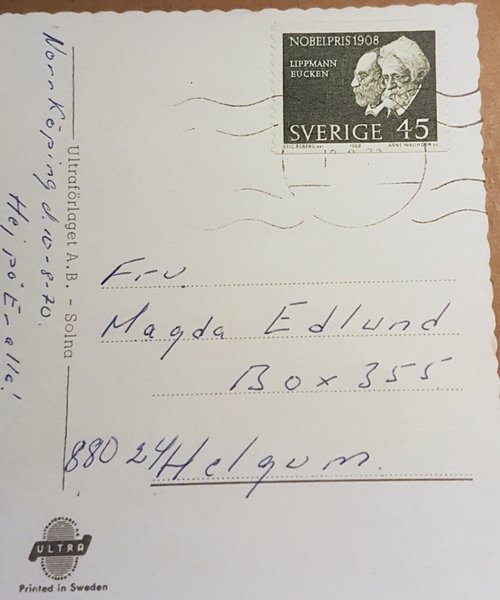 Norrköping d. 10-8-70.
Hej på Er alla!
Ultraförlaget A.B. - Solna
NOBELPRIS 1908
LIPPMANN
EUCKEN
SVERIGE 45
STIG ÅSBERG 1968 ARNE WALLHORN SC
Fru
Magda Edlund
Box 355
880 24 Helgum.
ULTRA
Printed in Sweden